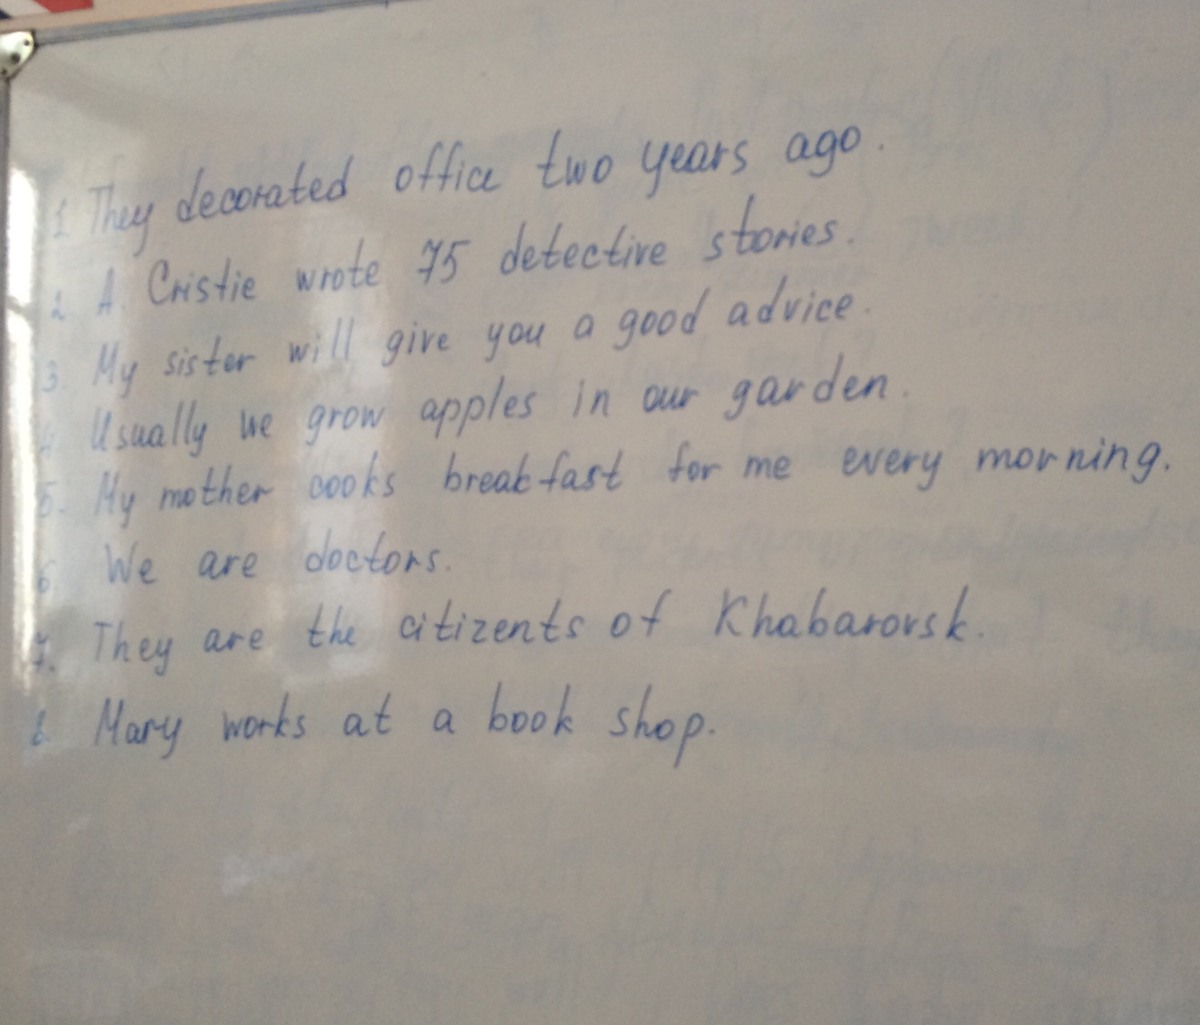 1. They decorated office two years ago.
2. A. Cristie wrote 75 detective stories.
3. My sister will give you a good advice.
4. Usually we grow apples in our garden.
5. My mother cooks breakfast for me every morning.
6. We are doctors.
7. They are the citizents of Khabarovsk.
8. Mary works at a book shop.